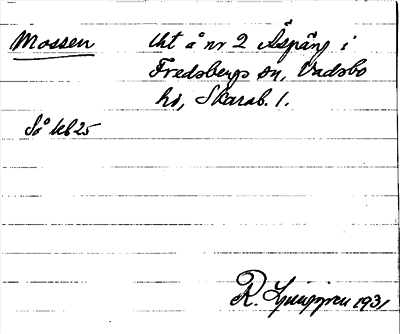 Mossen Utt å nr 2 Äspäng i
Fredsbergs sn, Vadsbo
hd, Skarab. l.
Så kb 25
R. Ljunggren 1931